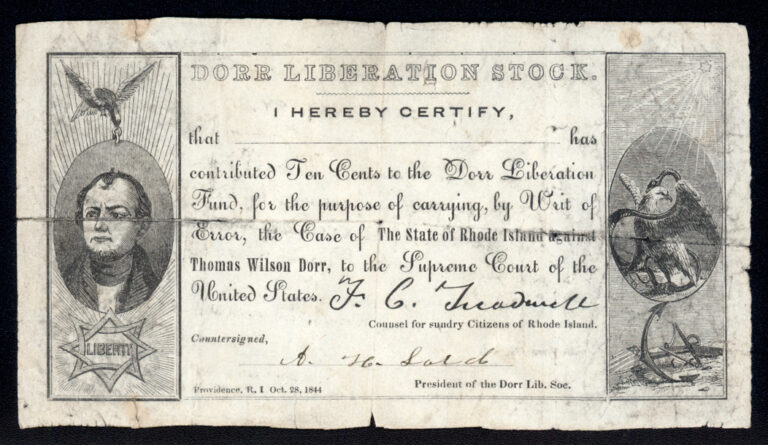 DORR LIBERATION STOCK.
I HEREBY CERTIFY,
that has
contributed Ten Cents to the Dorr Liberation
Fund, for the purpose of carrying, by Writ of
Error, the Case of The State of Rhode Island against
Thomas Wilson Dorr, to the Supreme Court of the
United States. F. C. Treadwell
Counsel for sundry Citizens of Rhode Island.
Countersigned,
A. H.
Providence, R. I Oct. 28, 1844 President of the Dorr Lib. Soc.
LIBERTY